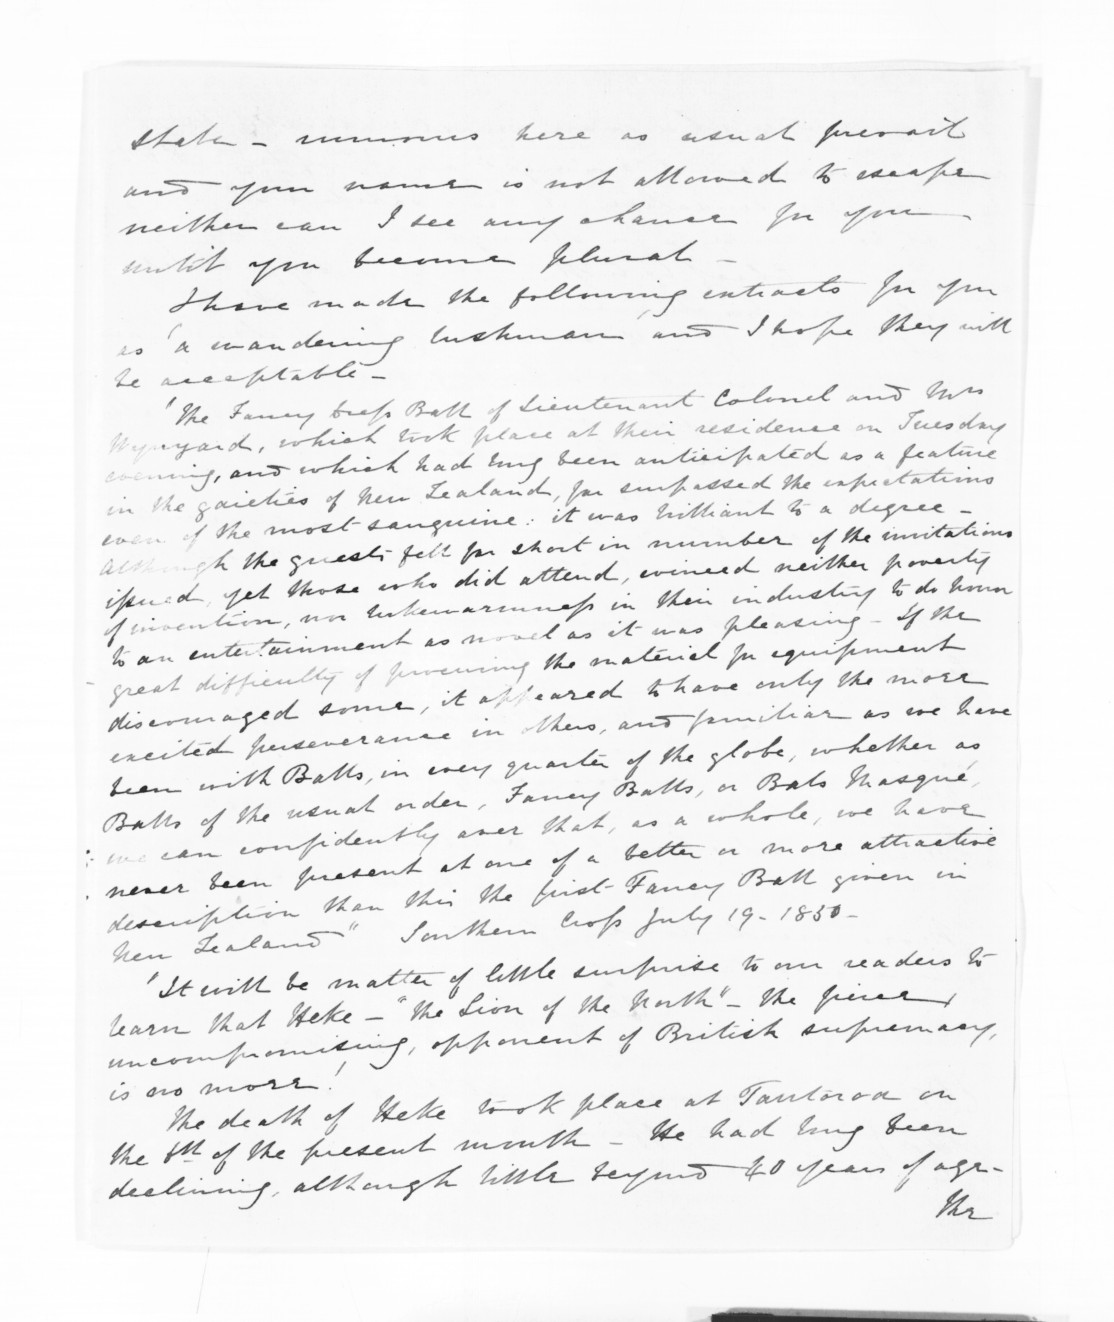 state - rumours here as usual prevail
and your name is not allowed to escape
neither can I see any chance for you
until you become plural -
I have made the following extracts for you
as 'a wandering bushman' and I hope they will
be acceptable -
'The Fancy Dress Ball of Lieutenant Colonel and Mrs
Wynyard, which took place at their residence on Tuesday
evening, and which had long been anticipated as a feature
in the gaieties of New Zealand, far surpassed the expectations
even of the most sanguine: it was brilliant to a degree -
Although the guests fell far short in number of the invitations
issued, yet those who did attend, evinced neither poverty
of invention, nor lukewarmness in their industry to do honor
to an entertainment as novel as it was pleasing - If the
great difficulty of procuring the material for equipment
discouraged some, it appeared to have only the more
excited perseverance in others, and familiar as we have
been with Balls, in every quarter of the globe, whether as
Balls of the usual order, Fancy Balls, or Bals Masqué,
we can confidently aver that, as a whole, we have
never been present at one of a better or more attractive
description than this the first Fancy Ball given in
New Zealand" Southern Cross July 19 - 1850 -
'It will be matter of little surprise to our readers to
learn that Heke - "the Lion of the North" - the fierce,
uncompromising, opponent of British supremacy,
is no more!
The death of Heke took place at Tautoroa on
the 6th of the present month - He had long been
declining, although little beyond 40 years of age -
the